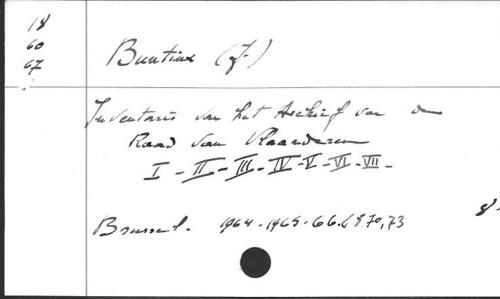 18
60
67
Buntinx (J.)
Inventaris van het Archief van de
Raad van Vlaanderen
I - II - III - IV - V - VI - VII -
Brussel. 1964 - 1965 - 66.68.70,73
8.